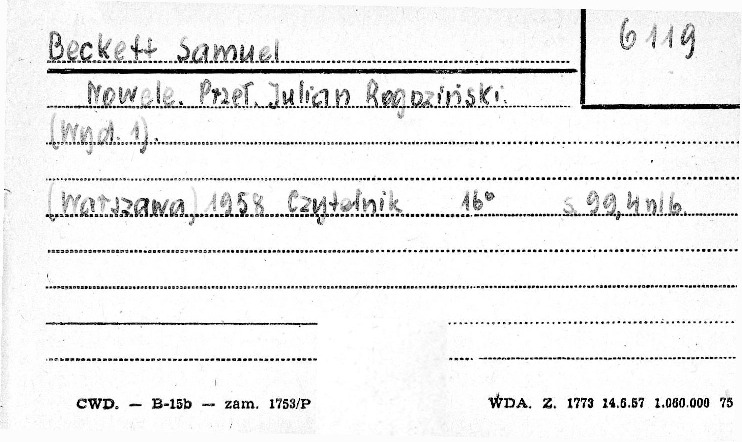 Beckett Samuel
6119
Nowele. Przeł. Julian Rogoziński.
(Wyd. 1).
(Warszawa) 1958 Czytelnik 16° s. 99, 4 nlb.
CWD. — B-15b — zam. 1753/P
WDA. Z. 1773 14.6.57 1.060.000 75